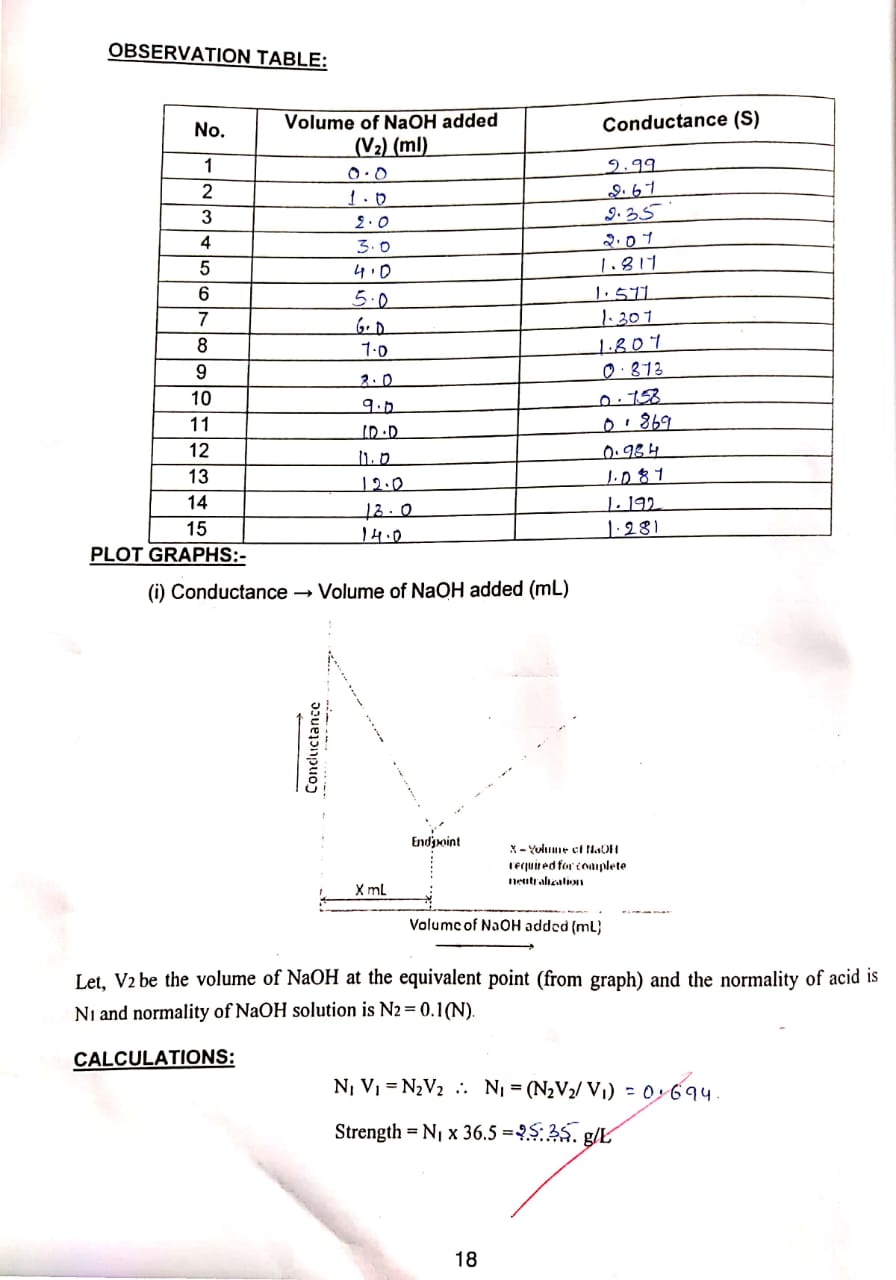 OBSERVATION TABLE:
No. Volume of NaOH added (V₂) (ml) Conductance (S)
1 0.0 2.99
2 1.0 2.67
3 2.0 2.35
4 3.0 2.07
5 4.0 1.817
6 5.0 1.577
7 6.0 1.307
8 7.0 1.807
9 8.0 0.873
10 9.0 0.758
11 10.0 0.869
12 11.0 0.984
13 12.0 1.087
14 13.0 1.192
15 14.0 1.281
PLOT GRAPHS:-
(i) Conductance → Volume of NaOH added (mL)
Conductance
Endpoint
X – Volume of NaOH
required for complete
neutralization
X mL
Volume of NaOH added (mL)
Let, V2 be the volume of NaOH at the equivalent point (from graph) and the normality of acid is
N1 and normality of NaOH solution is N2 = 0.1(N).
CALCULATIONS:
N₁ V₁ = N₂V₂ ∴ N₁ = (N₂V₂/ V₁) = 0.694.
Strength = N₁ x 36.5 = 25.35. g/L
18